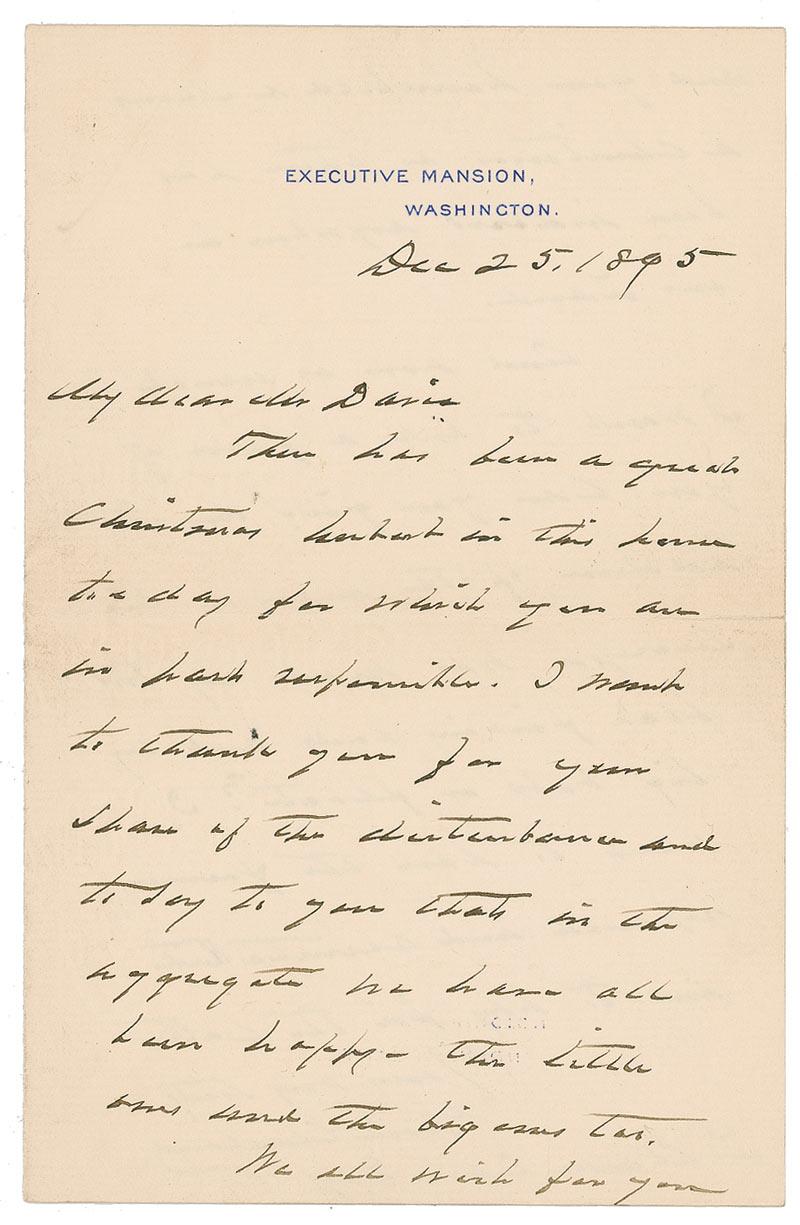 EXECUTIVE MANSION,
WASHINGTON.
Dec 25. 1895
My dear Mr Davis
There has been a great
Christmas in this house
to day for which you are
in part responsible. I want
to thank you for your
share of the disturbance and
to say to you that in the
aggregate we have all
been happy - the little
ones and the big ones too.
We all wish for you